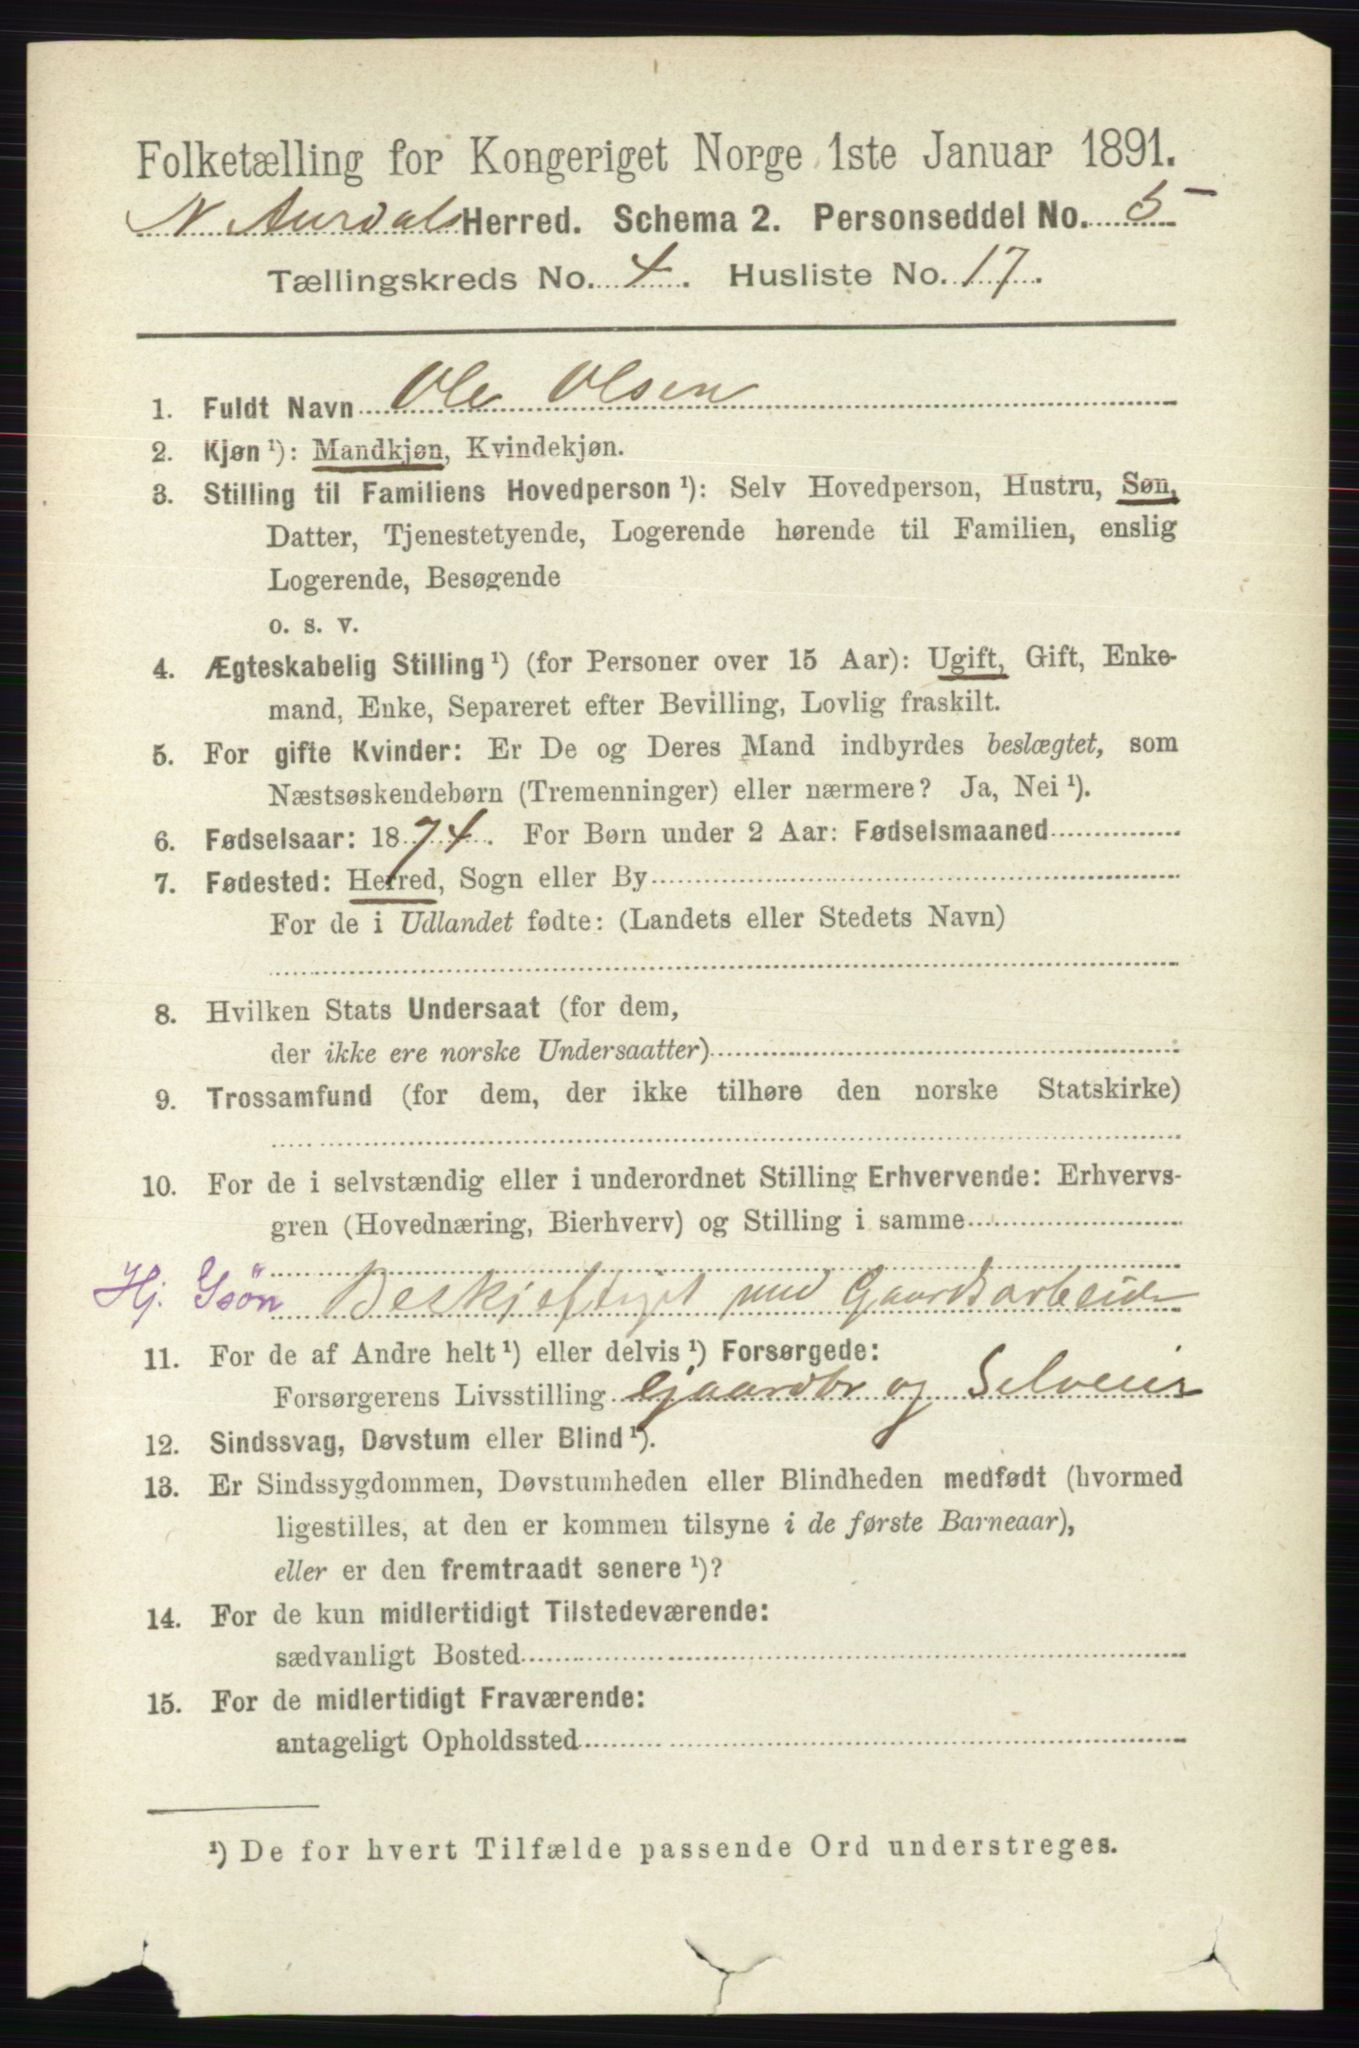 Folketælling for Kongeriget Norge 1ste Januar 1891.
N. Aurdal Herred. Schema 2. Personseddel No. 5
Tællingskreds No. 4. Husliste No. 17.
1. Fuldt Navn Ole Olsen
2. Kjøn ¹): Mandkjøn, Kvindekjøn.
3. Stilling til Familiens Hovedperson ¹): Selv Hovedperson, Hustru, Søn,
Datter, Tjenestetyende, Logerende hørende til Familien, enslig
Logerende, Besøgende
o. s. v.
4. Ægteskabelig Stilling ¹) (for Personer over 15 Aar): Ugift, Gift, Enke-
mand, Enke, Separeret efter Bevilling, Lovlig fraskilt.
5. For gifte Kvinder: Er De og Deres Mand indbyrdes beslægtet, som
Næstsøskendebørn (Tremenninger) eller nærmere? Ja, Nei ¹).
6. Fødselsaar: 1874. For Børn under 2 Aar: Fødselsmaaned
7. Fødested: Herred, Sogn eller By
For de i Udlandet fødte: (Landets eller Stedets Navn)
8. Hvilken Stats Undersaat (for dem,
der ikke ere norske Undersaatter)
9. Trossamfund (for dem, der ikke tilhøre den norske Statskirke)
10. For de i selvstændig eller i underordnet Stilling Erhvervende: Erhvervs-
gren (Hovednæring, Bierhverv) og Stilling i samme
Hj. Gsön Beskjeftiget med Gaardsarbeide
11. For de af Andre helt ¹) eller delvis ¹) Forsørgede:
Forsørgerens Livsstilling Gaardbr og Selveier
12. Sindssvag, Døvstum eller Blind ¹).
13. Er Sindssygdommen, Døvstumheden eller Blindheden medfødt (hvormed
ligestilles, at den er kommen tilsyne i de første Barneaar),
eller er den fremtraadt senere ¹)?
14. For de kun midlertidigt Tilstedeværende:
sædvanligt Bosted
15. For de midlertidigt Fraværende:
antageligt Opholdssted
¹) De for hvert Tilfælde passende Ord understreges.